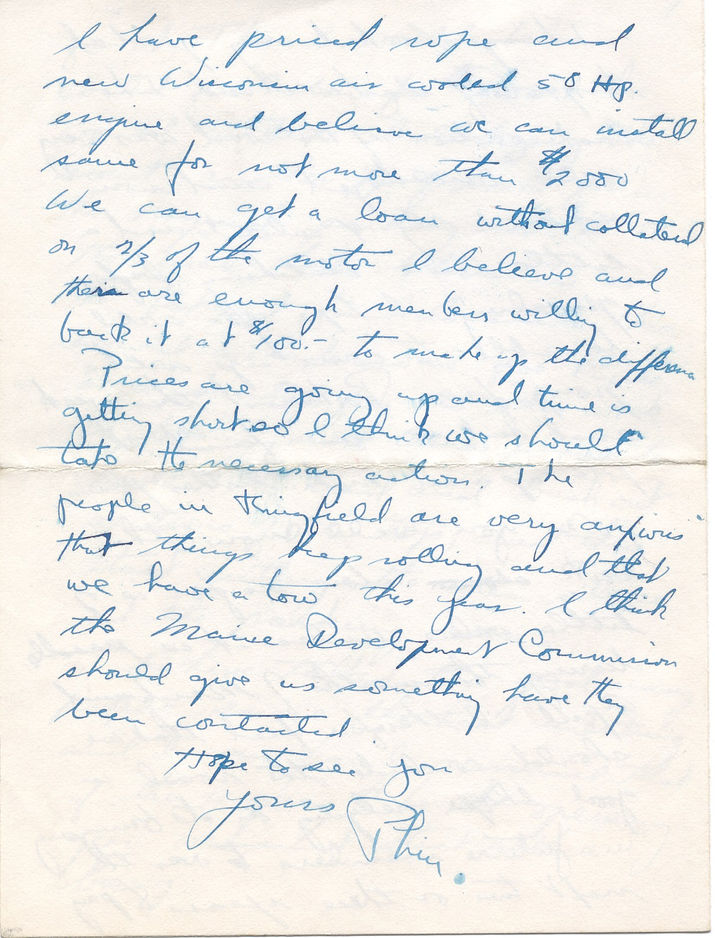 I have priced rope and
new Wisconsin air cooled 58 Hp.
engine and believe we can install
same for not more than $2000
We can get a loan without collateral
on 2/3 of the motor I believe and
there are enough members willing to
back it at $100.- to make up the difference
Prices are going up and time is
getting short so I think we should
take the necessary action. The
people in Kingfield are very anxious
that things keep rolling and that
we have a tow this year. I think
the Maine Development Commission
should give us something have they
been contacted
Hope to see you
Yours